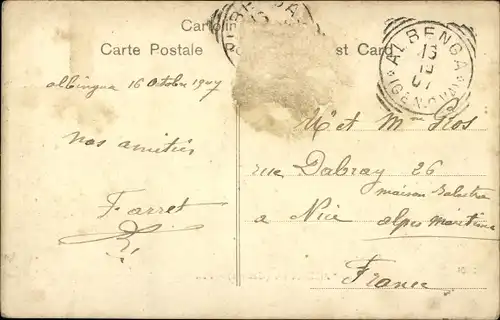 Carte Postale
st Card
ALBENGA
16
10
07
(GENOVA)
Albingua 16 Octobre 1907
nos amitiés
Farret
Mr et Mme Glos
rue Dabray 26
maison
a Nice
alpes maritimes
France